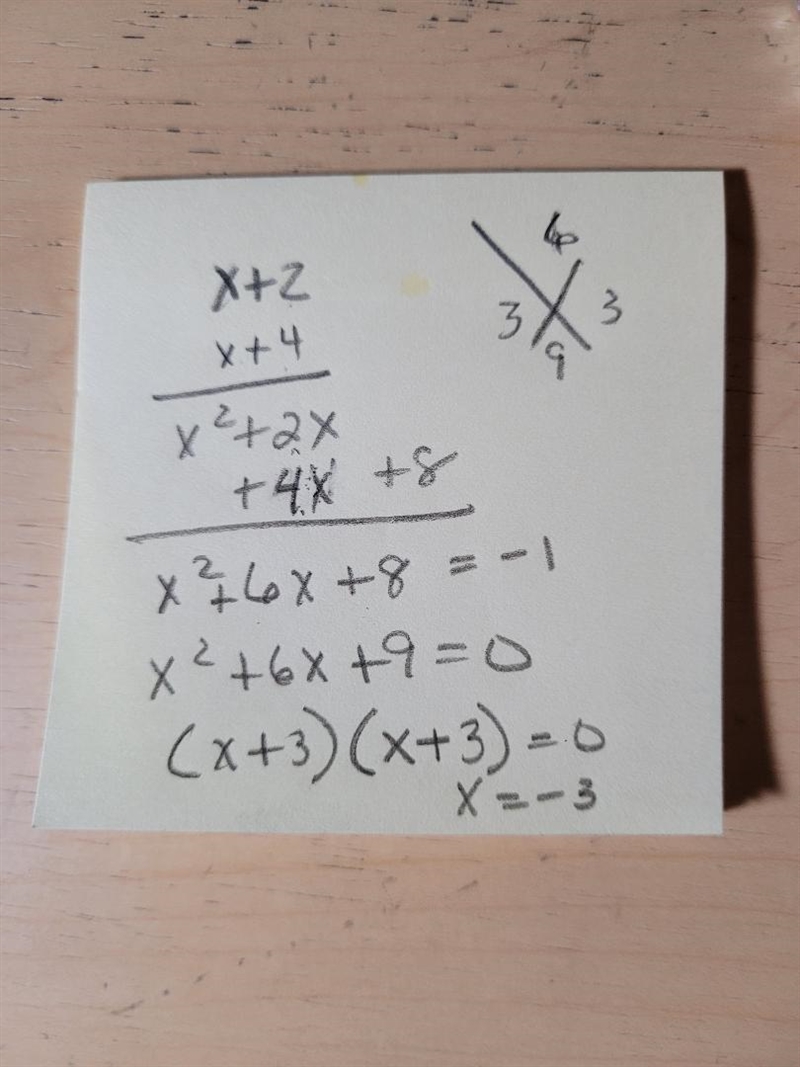 x+2
x+4
x²+2x
+4x +8
x²+6x+8 = -1
x²+6x+9=0
(x+3)(x+3)=0
x=-3
6
3 3
9